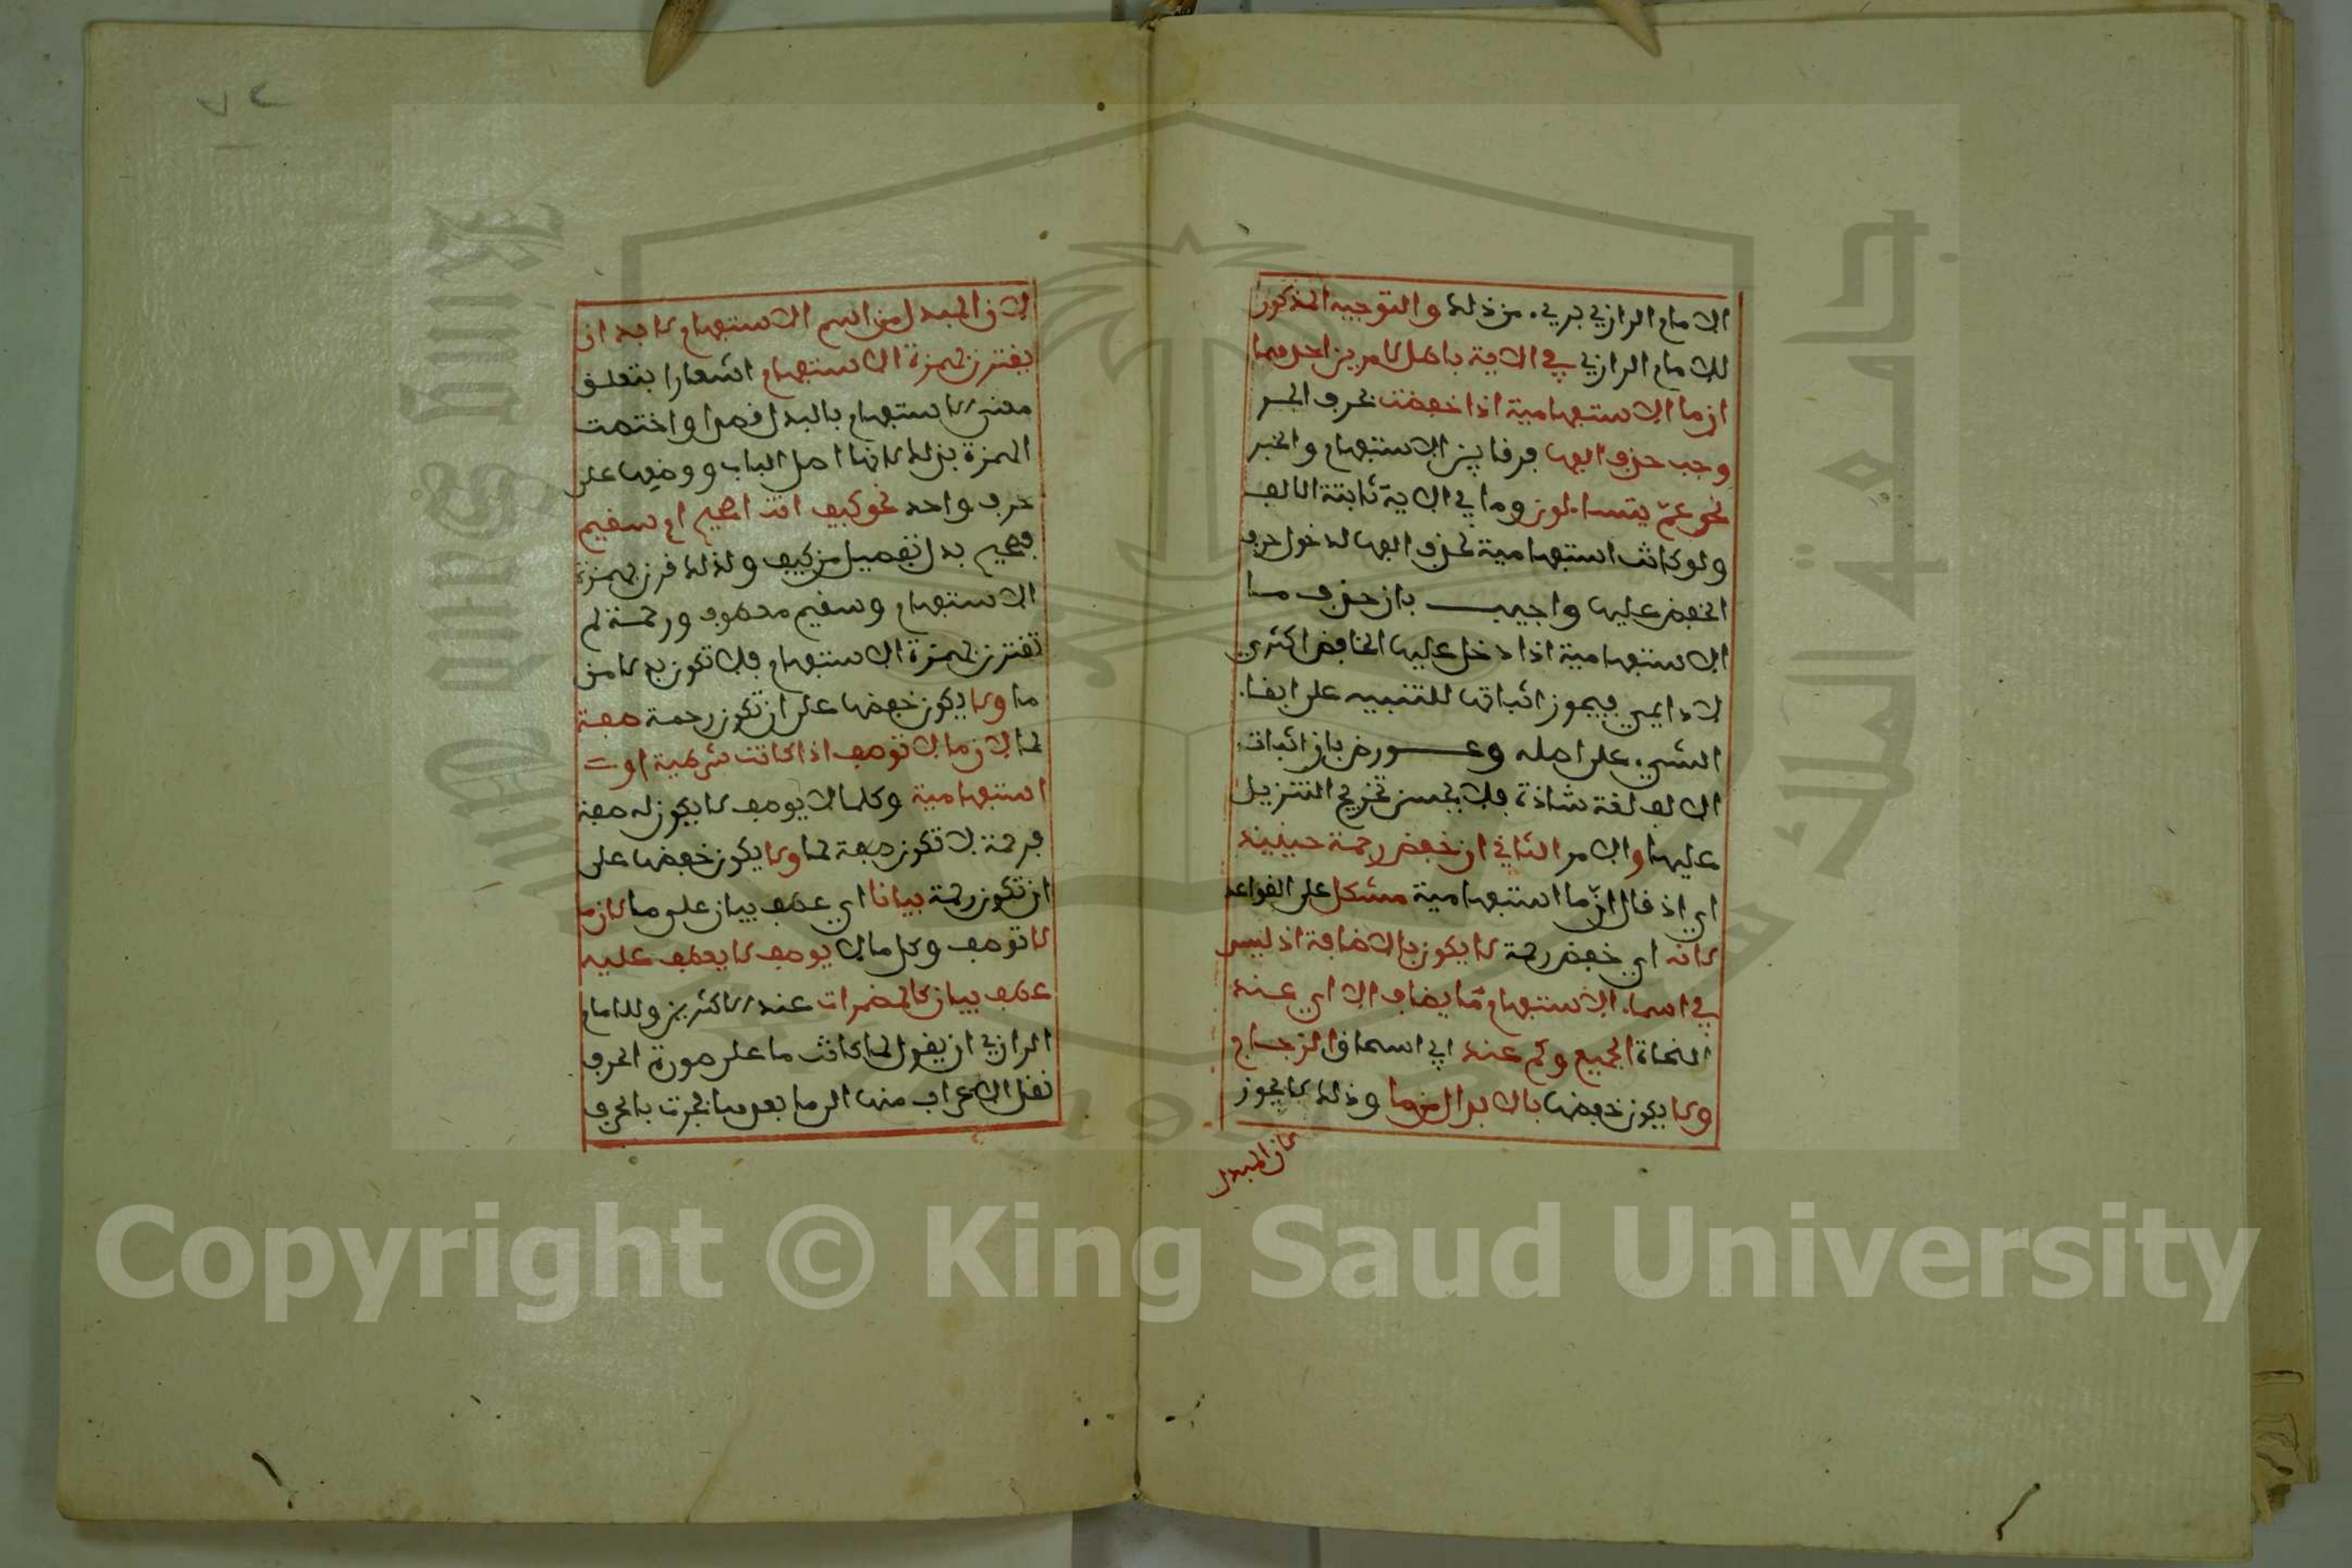 الامام الرازي بريء من ذلك والتوجيه المذكور
للامام الرازي في الاية باطل لامرين احدهما
ان ما الاستفهامية اذا خفضت بحرف الجر
وجب حذف الفها فرقا بين الاستفهام والخبر
نحو عمّ يتساءلون وما في الاية ثابتة الالف
ولو كانت استفهامية لحذف الفها لدخول حرف
الخفض عليها واجيب بان حذف ما
الاستفهامية اذا دخل عليها الخافض اكثري
لا دايمي فيجوز اثباتها للتنبيه على ابقاء
الشيء على اصله وعورض بان اثبات
الالف لغة شاذة فلا يحسن تخريج التنزيل
عليها والامر الثاني ان خفض رحمة حينيذ
اي اذ قال ان ما استفهامية مشكل على القواعد
لانه اي خفض رحمة لا يكون بالاضافة اذ ليس
في اسماء الاستفهام ما يضاف الا اي عند
النحاة الجميع وكم عند ابي اسحاق الزجاج
ولا يكون خفضها بالابدال من ما وذلك لا يجوز
لان المبدل
لان المبدل من اسم الاستفهام لا بد ان
يقترن بهمزة الاستفهام اشعارا بتعلق
معنى الاستفهام بالبدل قصدا واختصت
الهمزة بذلك لانها اصل الباب ووضعها على
حرف واحد نحو كيف انت اصحيح ام سقيم
فصحيح بدل تفصيل من كيف ولذلك قرن بهمزة
الاستفهام وسقيم معطوف ورحمة لم
تقترن بهمزة الاستفهام فلا تكون بدلا من
ما ولا يكون خفضها على ان تكون رحمة صفة
لما لان ما لا توصف اذا كانت شرطية او
استفهامية وكلما لا يوصف لا يكون له صفة
فرحمة لا تكون صفة لما ولا يكون خفضها على
ان تكون رحمة بيانا اي عطف بيان على ما لان ما
لا توصف وكل ما لا يوصف لا يعطف عليه
عطف بيان كالمضمرات عند الاكثرين وللامام
الرازي ان يقول لما كانت ما على صورة الحرف
نقل الاعراب منها الى ما بعدها فجرت بالحرف
Copyright © King Saud University
King Saud University
جامعة الملك سعود